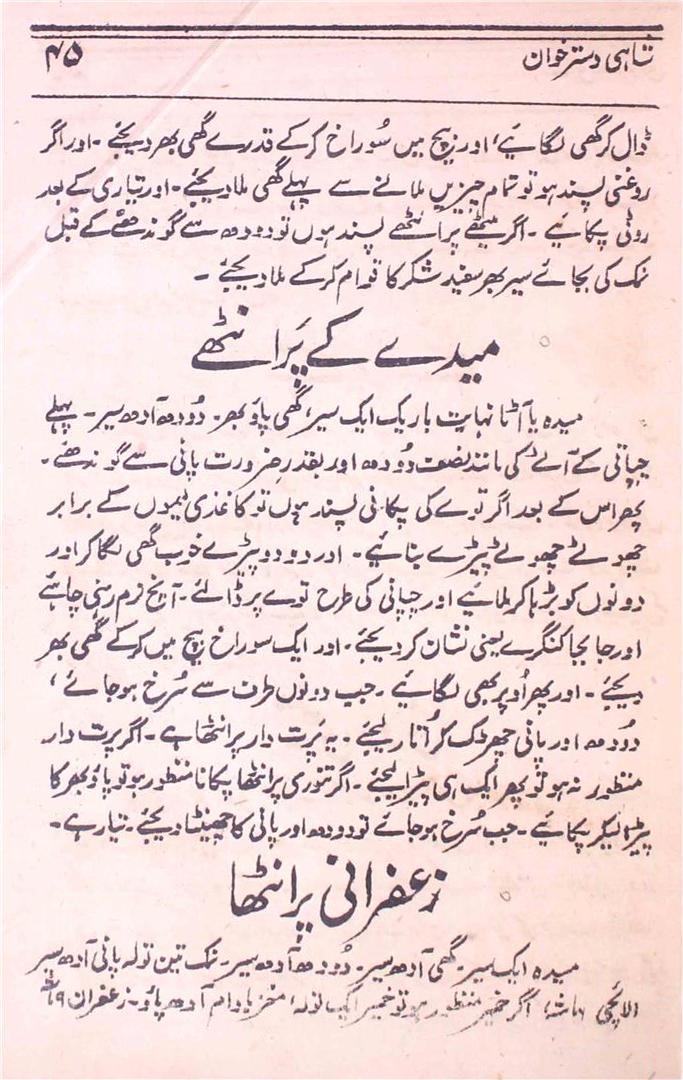 شاہی دسترخوان ۴۵
ڈال کر گھی لگائیے، اور بیچ میں سُوراخ کر کے قدرے گھی بھر دیجئے۔ اور اگر
روغنی پسند ہو تو تمام چیزیں ملانے سے پہلے گھی ملا دیجئے۔ اور تیاری کے بعد
روٹی پکائیے۔ اگر میٹھے پراٹھے پسند ہوں تو دودھ سے گوندھنے کے قبل
نمک کی بجائے سیر بھر سفید شکر کا قوام کر کے ملا دیجئے۔
میدے کے پَرانٹھے
میدہ یا آٹا نہایت باریک ایک سیر، گھی پاؤ بھر۔ دُودھ آدھ سیر۔ پہلے
چپاتی کے آٹے کی مانند نصف دُودھ اور بقدرِ ضرورت پانی سے گوندھئے۔
پھر اس کے بعد اگر توے کی پکانی پسند ہوں تو کاغذی لیموں کے برابر
چھوٹے چھوٹے پیڑے بنائیے۔ اور دو دو پیڑے خوب گھی لگا کر اور
دونوں کو بڑہا کر ملائیے اور چپاتی کی طرح توے پر ڈالئے۔ آنچ نرم رہنی چاہئے
اور جا بجا کنگرے یعنی نشان کر دیجئے۔ اور ایک سوراخ بیچ میں کر کے گھی بھر
دیجئے۔ اور پھر اُوپر بھی لگائیے۔ جب دونوں طرف سے سُرخ ہو جائے،
دُودھ اور پانی چھڑک کر اُتار لیجئے۔ یہ پَرت دار پرانٹھا ہے۔ اگر پرت دار
منظور نہ ہو تو پھر ایک ہی پیڑا لیجئے۔ اگر تنوری پرانٹھا پکانا منظور ہو تو پاؤ بھر کا
پیڑا لیکر پکائیے۔ جب سُرخ ہو جائے تو دودھ اور پانی کا چھینٹا دیجئے۔ تیار ہے۔
زعفرانی پرانٹھا
میدہ ایک سیر۔ گھی آدھ سیر۔ دُودھ آدھ سیر۔ نمک تین تولہ پانی آدھ سیر
الائچی ماشہ، اگر خمیر منظور ہو تو خمیر ایک تولہ، مغز بادام آدھ پاؤ۔ زعفران ۹ ماشہ